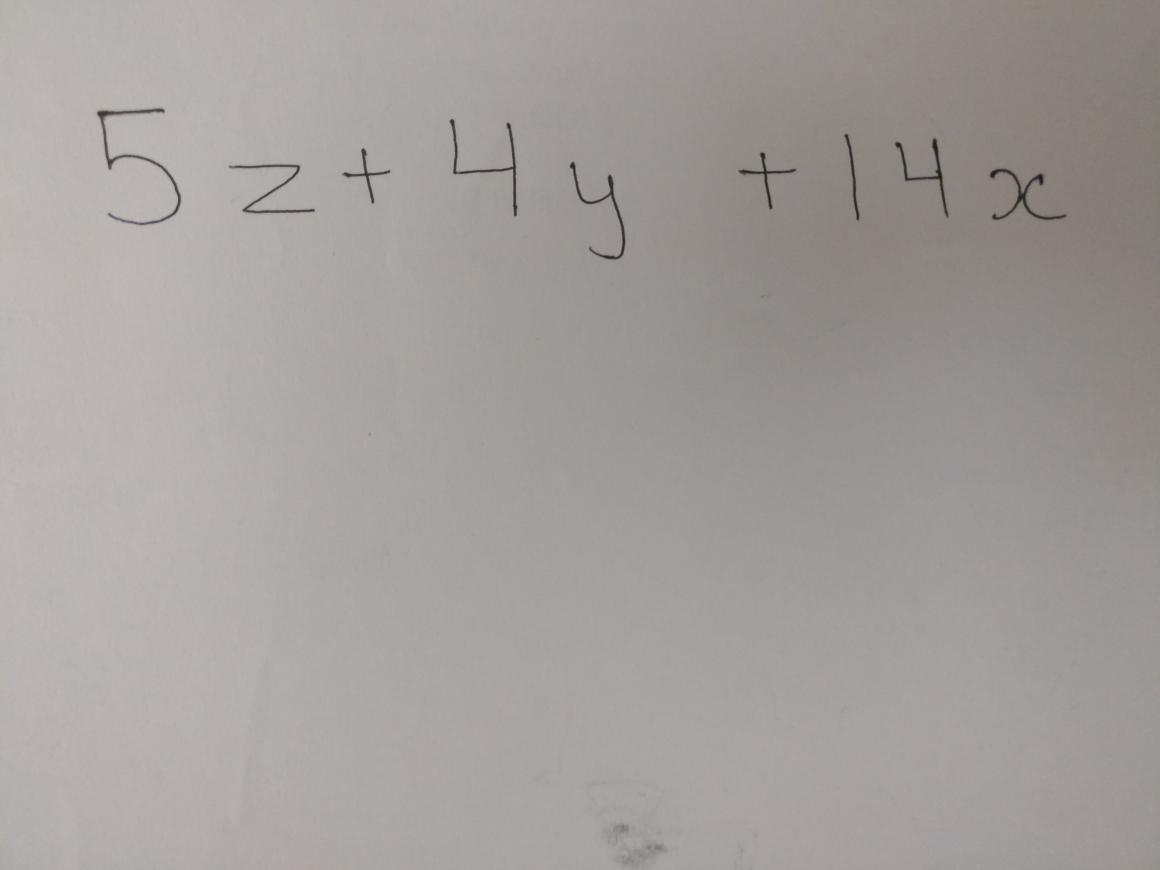 5z+4y +14x